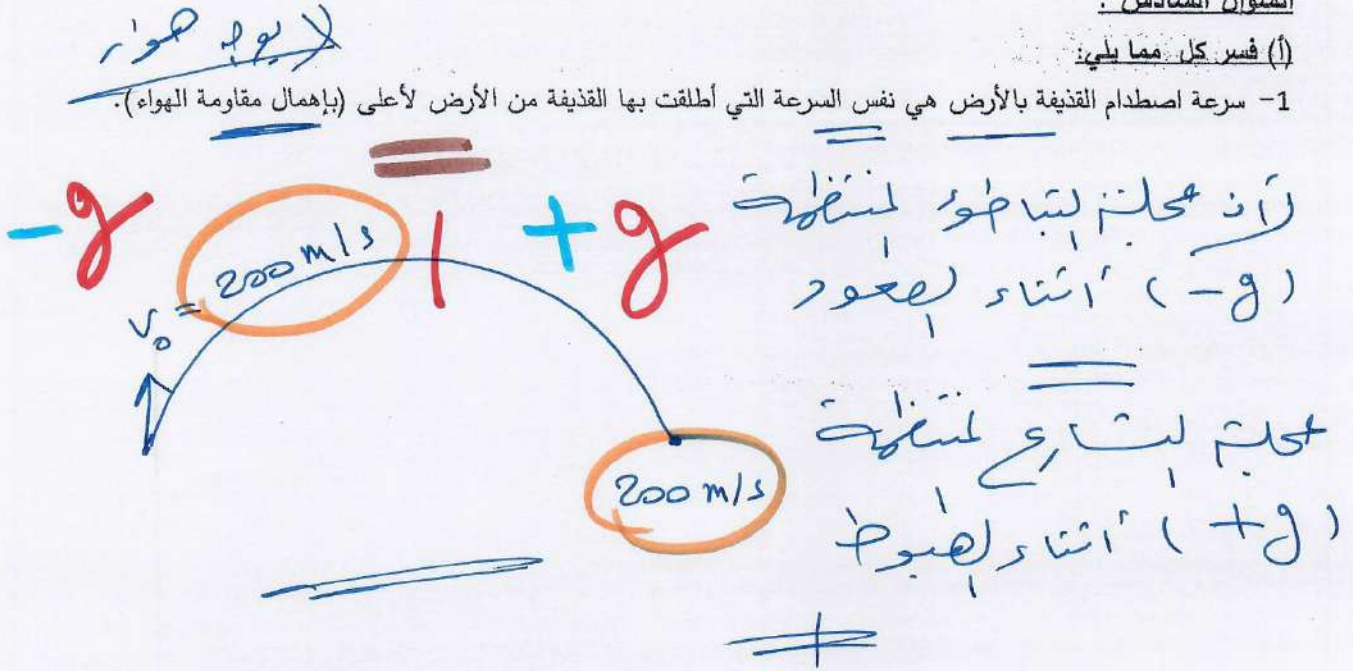 السؤال السادس :
(أ) فسر كل مما يلي:
لا يوجد هواء
1- سرعة اصطدام القذيفة بالأرض هي نفس السرعة التي أطلقت بها القذيفة من الأرض لأعلى (بإهمال مقاومة الهواء).
لأن عجلة التباطؤ منتظمة
(-g) أثناء الصعود
عجلة التسارع منتظمة
(+g) أثناء الهبوط
-g
+g
v₀ = 200 m/s
200 m/s